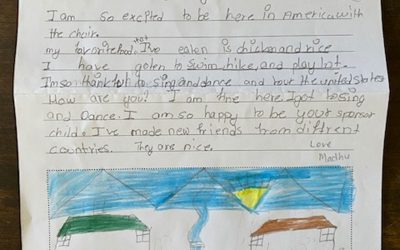 I am so excited to be here in America with
the choir.
my favorite food that I've eaten is chicken and rice
I have goten to swim, hike, and play lot.
Im so thankful to sing and dance and tour the united states
How are you? I am fine here. I got to sing
and Dance. I am so happy to be your sponsor
child. I've made new friends from diffrent
countries. They are nice.
Love
Madhu